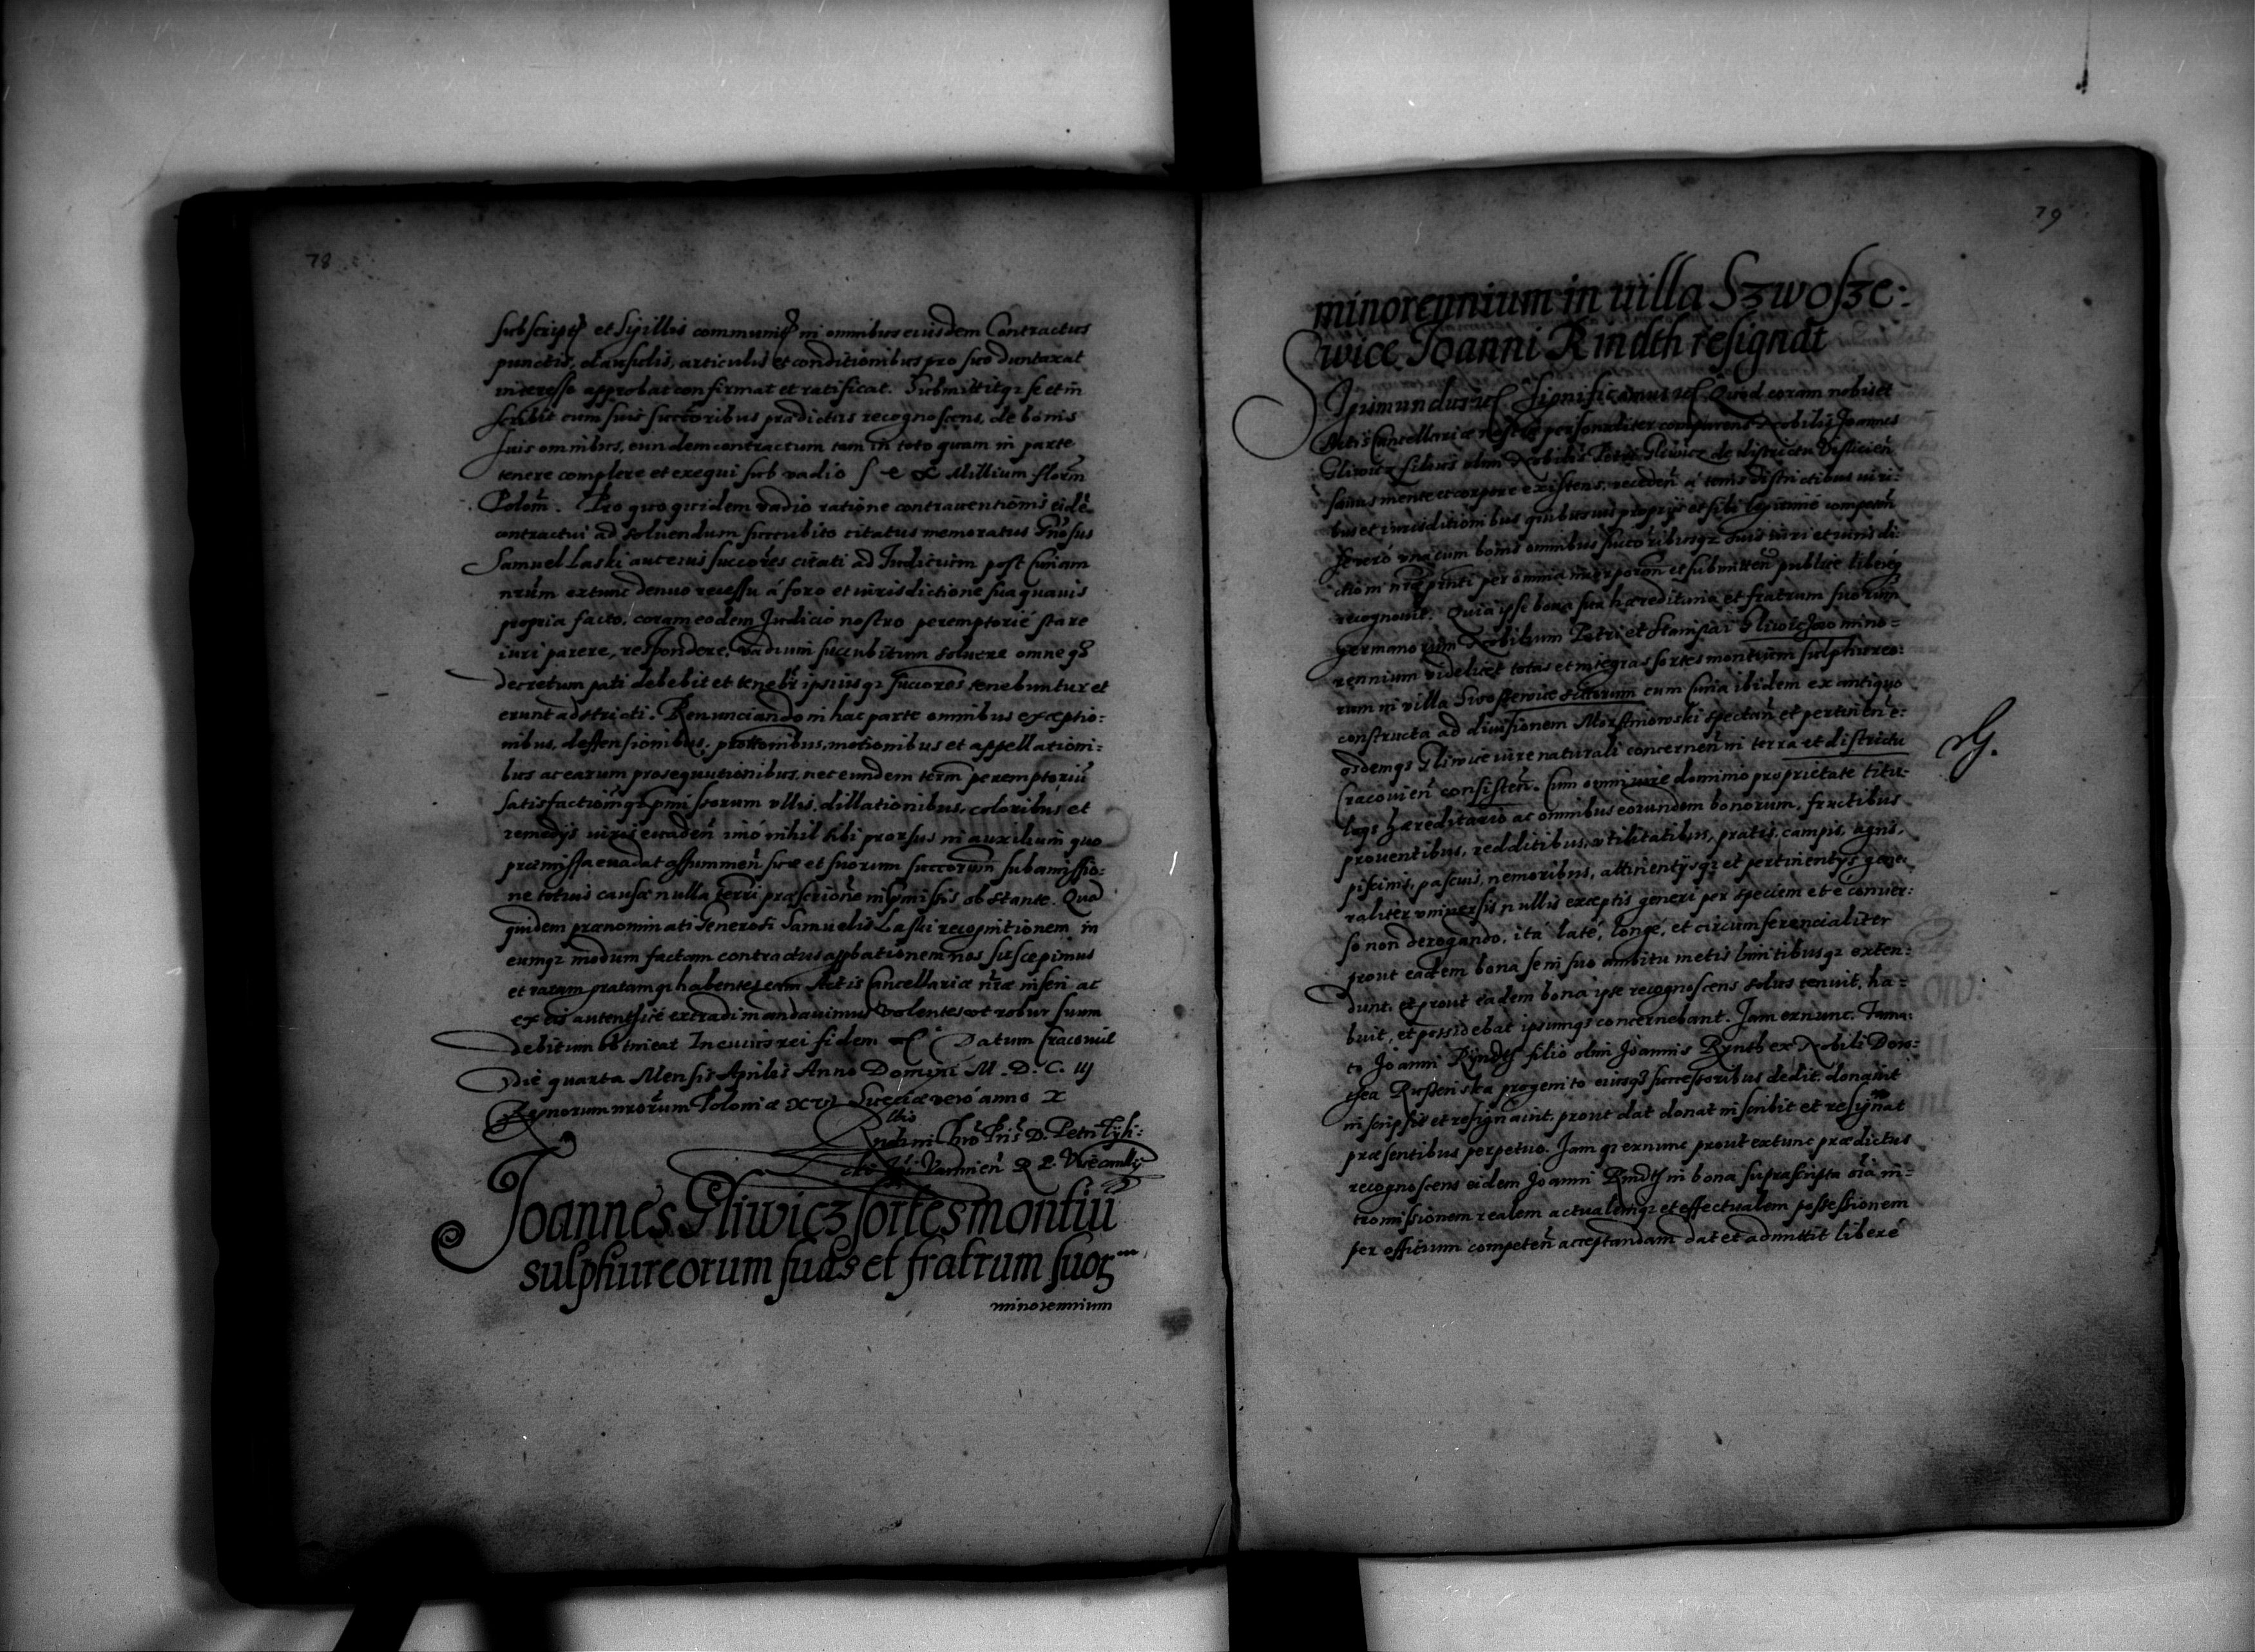 78
subscript et sigillis communit in omnibus eiusdem Contractus
punctis, clausulis, articulis et conditionibus pro suo duntaxat
interesse approbat confirmat et ratificat. Submittitqz se et in
scribit cum suis succoribus prædictus recognoscens, de bonis
suis omnibus, eundem contractum tam in toto quam in parte
tenere complere et exequi sub vadio Millium floren
Polon. Pro quo quidem vadio ratione contrauentionis eidē
contractui ad soluendum succubito citatus memoratus Gnosus
Samuel Laski aut eius succores citati ad Iudicium post Curiam
nrām extunc denuo recessu á foro et iurisdictione sua quauis
propria facto, coram eodem Judicio nostro peremptorié stare
iuri parere, respondere, vadium succubitum soluere omneqz
decretum pati debebit et tenebr ipsiusqz succores tenebuntur et
erunt adstricti. Renunciando in hac parte omnibus exceptio:
nibus, deffensionibus, motionibus et appellationi:
bus ac earum prosequutionibus, nec eundem term peremptoriū
satisfactionqz pmissorum vllis dillationibus, coloribus et
remedijs iuris euaden imó nihil sibi prorsus in auxilium quo
præmissa euadat assummen suæ et suorum succorum sub amissio:
ne totius causæ nulla terri præscrione in pmissis obstante. Quā
quidem prænominati Generosi Samuelis Laski recognitionem in
eumqz modum factam contractus appbationem nos suscepimus
et ratam gratamqz habentes eam Actis Cancellariæ nræ inseri ac
ex eis autenthicé extradi mandauimus volentes vt robur suum
debitum obtineat In cuius rei fidem Datum Cracouiæ
die quarta Mensis Aprilis Anno Domini M.D.C.iij
Regnorum nrorum Poloniæ XVI Sueciæ veró anno X
Rndi in Chro Pris D. Petri Tyli:
cki Varmien R P. Vicecanllrij
Joannes Gliwicz sortes montiū
sulphureorum suas et fratrum suoꝝ
minorennium
79
minorennium in uilla Szwosze:
wice Joanni Rindth resignat
Sigismundus Significamus Quod coram nobis et
Actis Cancellariæ nostræ personaliter comparens Nobilis Joannes
Gliwicz filius olim Nobilis Petri Gliwicz de districtu Vislicien
sanus mente et corpore existens, receden á terris districtibus iuri:
bus et iurisditionibus quibusuis proprijs et sibi legittimé competen
se veró vnacum bonis omnibus succoribusqz suis iuri et iurisdi:
ctioni nræ pnti per omnia incorporan et submitten publicé liberéqz
recognouit: Quia ipse bona sua hæreditaria et fratrum suorum
germanorum Nobilium Petri et Stanislai Gliwiczow mino=
rennium videlicet totas et integras sortes montium sulphureo:
rum in villa Swoszewice sitarum cum Curia ibidem ex antiquo
constructa ad diuisionem Morstinowski spectan et pertinen e:
osdemqz Gliwice iure naturali concernen in terra et districtu
Cracouien consisten. Cum omni iure dominio proprietate titu:
loqz hæreditario ac omnibus eorundem bonorum, fructibus
prouentibus, redditibus, vtilitatibus, pratis, campis, agris,
piscinis, pascuis, nemoribus, attinentijsqz et pertinentijs gene:
raliter vniuersis nullis exceptis generi per speciem et e conuer:
so non derogando, ita laté, longé, et circumferencialiter
prout eadem bona se in suo ambitu metis limitibusqz exten:
dunt, et prout eadem bona ipse recognoscens solus tenuit, ha=
buit, et possidebat ipsumqz concernebant. Jam exnunc Fama:
to Joanni Ryndth filio olim Joannis Rynth ex Nobili Doro:
thea Russenska progenito eiusqz successoribus dedit, donauit
inscripsit et resignauit, prout dat donat inscribit et resignat
præsentibus perpetuo. Jam qz exnunc prout extunc prædictus
recognoscens eidem Joanni Rindth in bona suprascripta oīa in=
tromissionem realem actualemqz et effectualem possessionem
per officium competen acceptandam dat et admittit liberé